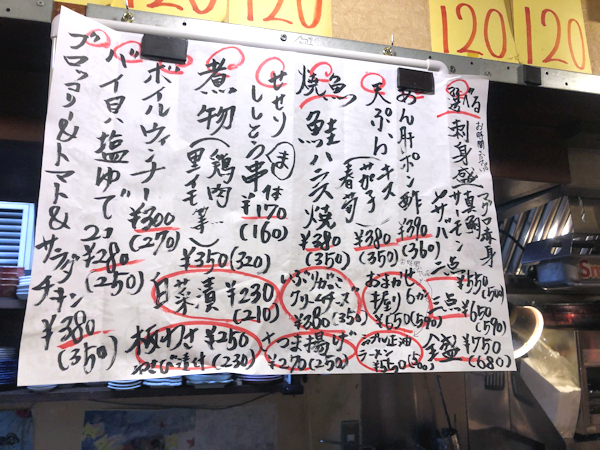 120
120
120
120
選べる刺身盛
お時間ください
マグロ赤身
真鯛
サーモン
〆サバ
二点 ¥550 (500)
三点 ¥650 (590)
全盛 ¥750 (680)
あん肝ポン酢 ¥390 (360)
天ぷら キス 茄子 春菊 ¥380 (350)
焼魚 鮭ハラス焼 ¥380 (350)
せせりししとう串(塩) 1本 ¥170 (160)
煮物(鶏肉 里イモ等) ¥350 (320)
ボイルウィンナー ¥300 (270)
バイ貝塩ゆで ¥280 (250)
ブロッコリー&トマト&サラダチキン ¥380 (350)
おまかせ握り 6カン ¥650 (590)
いぶりがっこクリームチーズ ¥380 (350)
白菜漬 ¥230 (210)
正油ラーメン ¥550
さつま揚げ ¥270 (250)
板わさ ¥250
わさび漬付 (230)